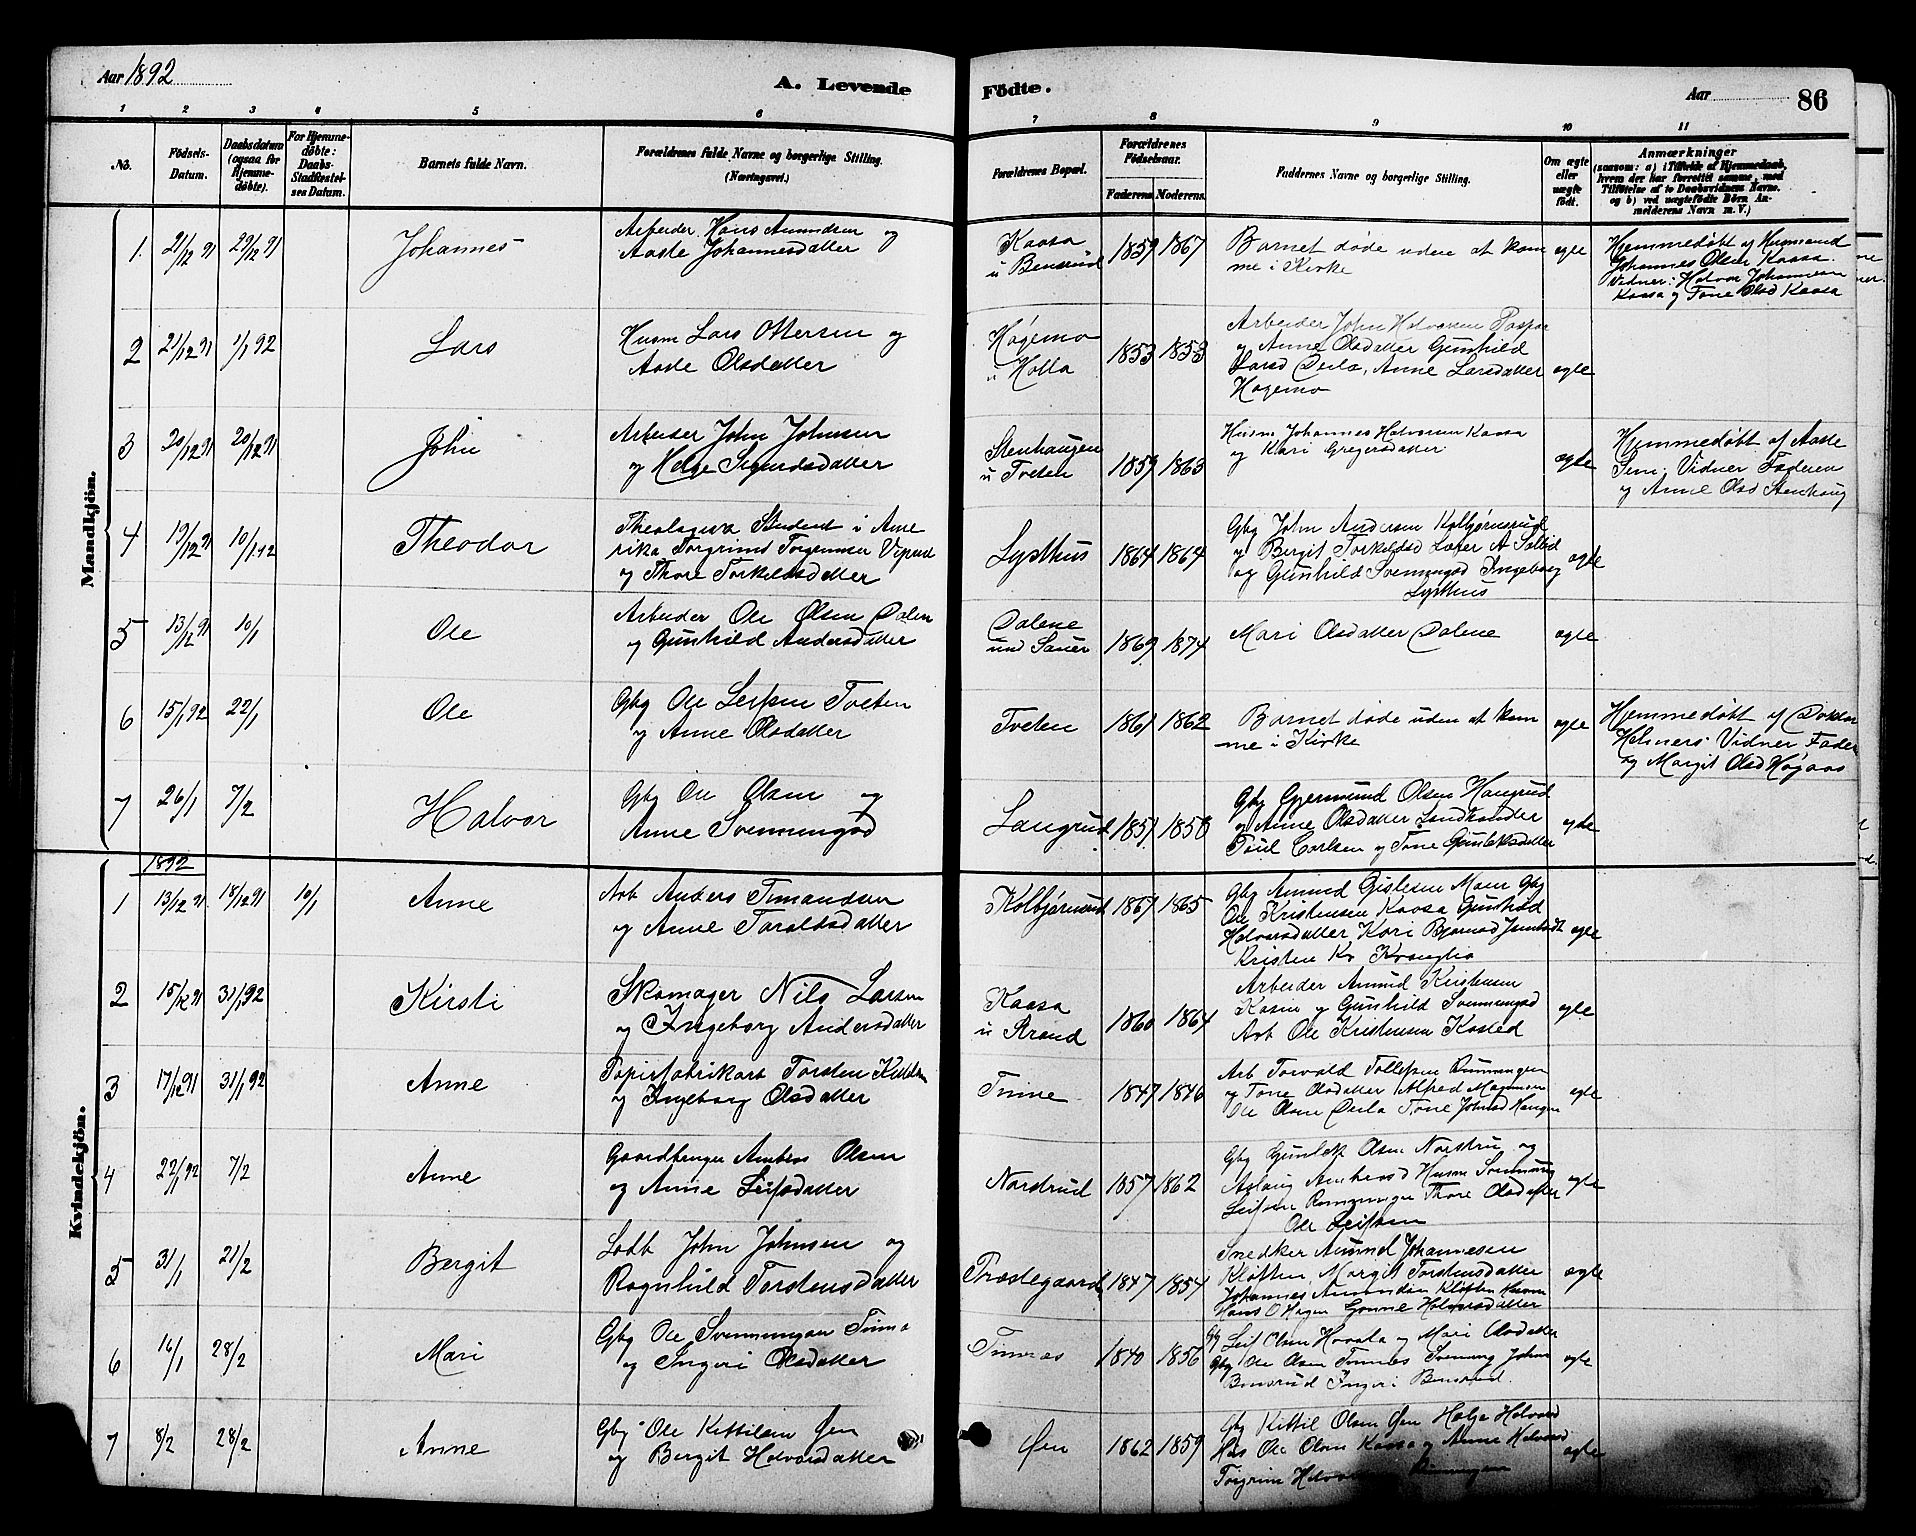 Aar 1892
A. Levende Födte.
Aar
86
1 2 3 4 5 6 7 8 9 10 11
No.
Födsels-Datum.
Daabsdatum (ogsaa for Hjemmedøbte).
For Hjemmedøbte: Daabs-Stadfæstelses Datum.
Barnets fulde Navn.
Forældrenes fulde Navne og borgerlige Stilling.
(Næringsvei.)
Forældrenes Bopæl.
Forældrenes Födselsaar.
Faderens Moderens
Faddernes Navne og borgerlige Stilling.
Om ægte eller uægte födt.
Anmærkninger
(saasom: a) i Tilfælde af Hjemmedaab, hvem der har forrettet samme, med Tilföielse af to Daabsvidners Navne, og b) ved uægtefödte Börn Anmelderens Navn m. V.)
Mandkjön.
1. 21/12 91 29/12 91 Johannes
Arbeider Hans Amundsen og
Aaste Johannesdatter
Kaasa
u Bensrud
1859 1867
Barnet døde uden at kom
me i Kirke
ægte
Hjemmedøbt af Husmand
Johannes Olsen Kaasa.
Vidner: Halvor Johannesen
Kaasa og Tone Olsd Kaasa
2 21/12 91 1/1 92 Lars
Husm Lars Ottersen og
Aaste Olsdatter
Høgemo
u Holla
1853 1853
Arbeider John Halvorsen
og Anne Olsdatter Gunhild
Larsd Deila, Anne Larsdatter
Hogemo
ægte
3 20/12 91 20/12 91 John
Arbeider John Johnsen
og Helge Sigurdsdatter
Stenhaugen
u Tveten
1859 1863
Husm Johannes Halvorsen Kaasa
og Kari Gregersdatter
ægte
Hjemmedøbt af Aaste
Sem. Vidner Faderen
og Anne Olsd Stenhaug
4 19/12 91 10/1 92 Theodor
Theologiva Student i Ame
rika Torgrimd Torgrimsen
og Thore Torkildsdatter
Lysthus
1864 1864
Gbg John Andersen Kolbjørnsrud
og Bergit Torkildsd
og Gunhild Svenningsd Ingeborg
Lysthus
ægte
5 13/12 91 10/1 Ole
Arbeider Ole Olsen Dalen
og Gunhild Andersdatter
Dalene
und Sauer
1869 1874
Mari Olsdatter Dalene
ægte
6 15/1 92 22/1 Ole
Gbg Ole Leifsen Tveten
og Anne Olsdatter
Tveten
1861 1862
Barnet døde uden at kom
me i Kirke
ægte
Hjemmedøbt af Doktor
Helmers. Vidner Fader
og Margit Olsd Høgaas
7 26/1 7/2 Halvor
Gbg Ole Olsen og
Anne Svenningsd
Langrud
1851 1850
Gbg Gjermund Olsen Haugrud
og Anne Olsdatter Landhandler
Poul Carlsen og Tone Gunleksdatter
ægte
Kvindekjön.
1892
1 13/12 91 18/12 91 10/1 Anne
Arb Anders Simundsen
og Anne Taraldsdatter
Kolbjørnsrud
1867 1865
Gbg Amund Gislesen Moen Gbg
Ole Kristensen Kaasa Gunhild
Halvorsdatter Kari Bjørnsd
Kristen
ægte
2 15/12 91 31/1 92 Kirsti
Skomager Nils Larsen
og Ingeborg Andersdatter
Kaasa
u Strand
1860 1864
Arbeider Amund Kristensen
Kasin og Gunhild Svenningsd
Arb Ole Kristensen Kasted
ægte
3 17/12 91 31/1 92 Anne
Papirfabrikarb Torsten Kittilsen
og Ingeborg Olsdatter
Tinne
1847 1846
Arb Torvald Tollefsen Rønningen
og Tone Olsdatter Alfred Magnusen
Ole Olsen Deila Tone Johnsd Haugen
ægte
4 22/1 92 7/2 Anne
Gaardbruger Ambros Olsen
og Anne Leifsdatter
Nordrud
1857 1862
Gbg Gunlek Olsen Nordrud og
Aslaug Ambrosd Husm Svenning
Leifsen Rønningen Thore Olsdatter
Ole Leifsen
ægte
5 31/1 21/2 Bergit
Lodb John Johnsen og
Ragnhild Torstensdatter
Præstegaard
1847 1854
Snedker Amund Johannesen
Kløften, Margit Torstensdatter
Johannes Amundsen Kløften Husm
Hans O Hagen Gonne Halvorsdatter
ægte
6 16/1 28/2 Mari
Gbg Ole Svenningsen
og Ingeri Olsdatter
Tinnes
1840 1856
Gbg Leif Olsen Haatta og Mari Olsdatter
Gbg Ole Olsen Tinnes Svenning Johns
Bensrud Ingeri Bensrud.
ægte
7 8/2 28/2 Anne
Gbg Ole Kittilsen Øen
og Bergit Halvorsdatter
Øen
1862 1859
Gbg Kittil Olsen Øen Helge Halvorsd
Hus Ole Olsen Kaasa og Anne Halvorsd
Torgrim
ægte